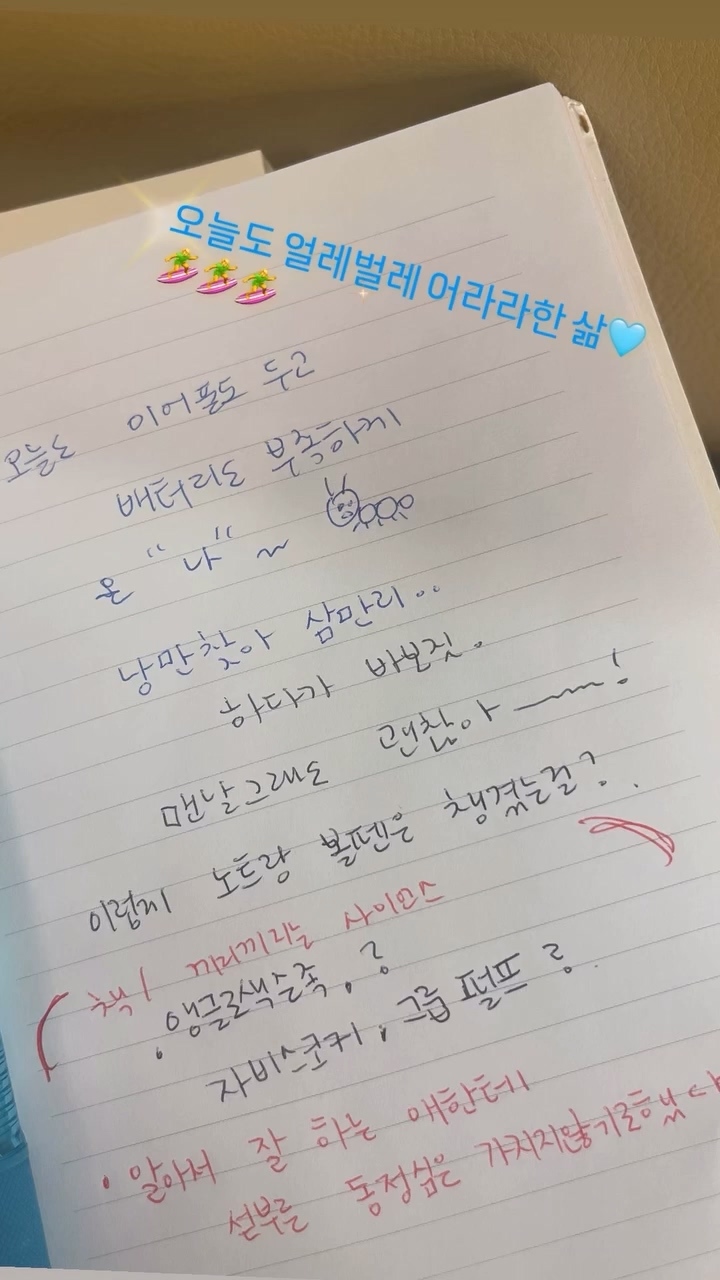 오늘도 얼레벌레 어라라한 삶
오늘도 이어폰도 두고
배터리도 부족하게
온 “나”~
낭만찾아 삼만리..
하다가 바보짓.
맨날그래도 괜찮아——!
이렇게 노트랑 볼펜은 챙겼는걸?.
책/ 끼리끼리는 사이언스
•앵글로색슨족,
자비스코커, 그룹 펄프
• 알아서 잘 하는 애한테
섣부른 동정심은 가지지않기로했